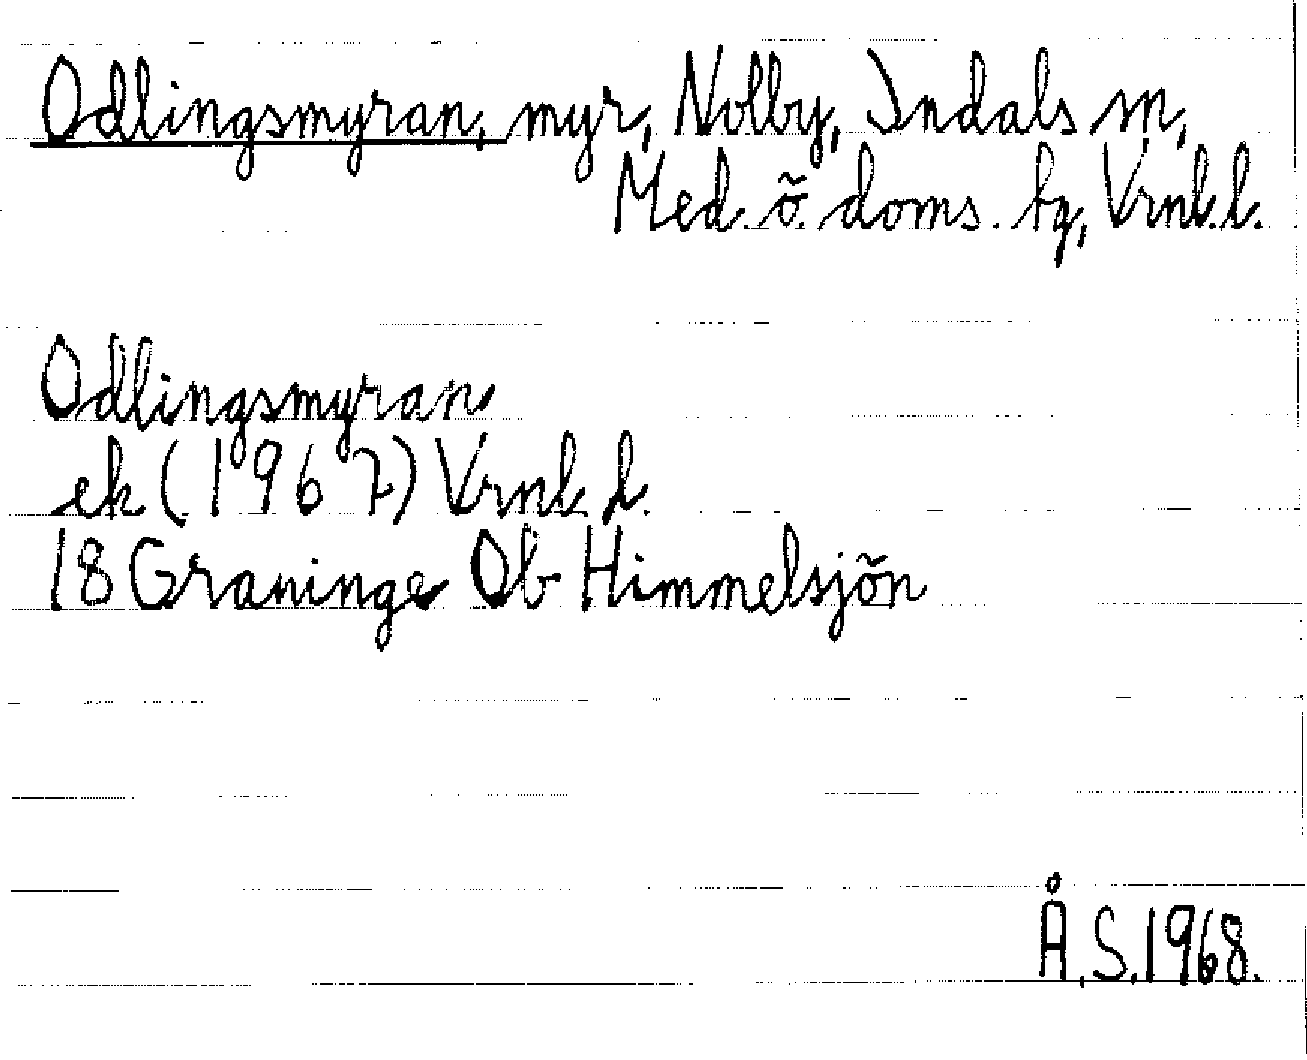 Odlingsmyran, myr, Nolby, Indals sn,
Med. ö. doms. tg, Vrnl.l.
Odlingsmyran
ek (1967) Vrnl. l.
18 Graninge Ob Himmelsjön
Å.S.1968.